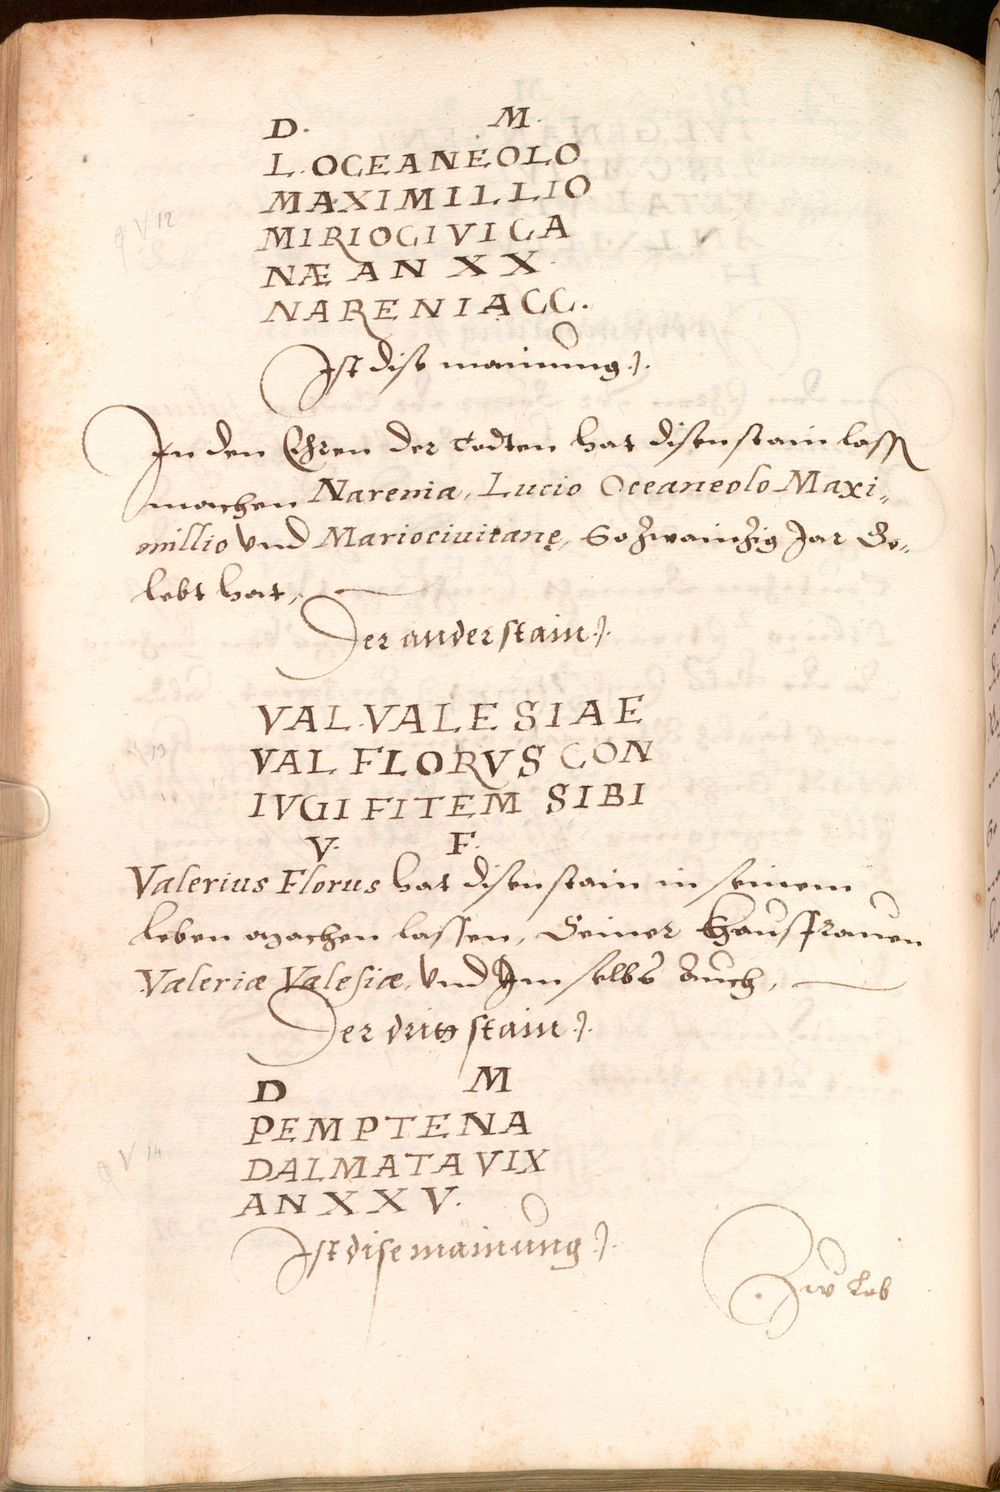 D. M.
L. OCEANEOLO
MAXIMILLIO
MIRIOCIVICA
NÆ AN XX.
NARENIACC.
Ist dise mainung.
In den Ehren der todten hat disen stain lassn
machen Narenia, Lucio Oceaneolo Maxi„
millio vnd Mariociuitanę, So zwainzig Jar Ge„
lebt hat,
Der ander stain.
VAL. VALESIAE
VAL FLORVS CON
IVGI FITEM SIBI
V. F.
Valerius Florus hat disen stain in seinem
leben machen lassen, Seiner Hausfrauen
Valeriæ Valesiæ, vnd Im selbs Auch,
Der drit stain.
D M
PEMPTENA
DALMATA VIX
AN XXV.
Ist dise mainung.
Zw Lob
V 12
13
V 14